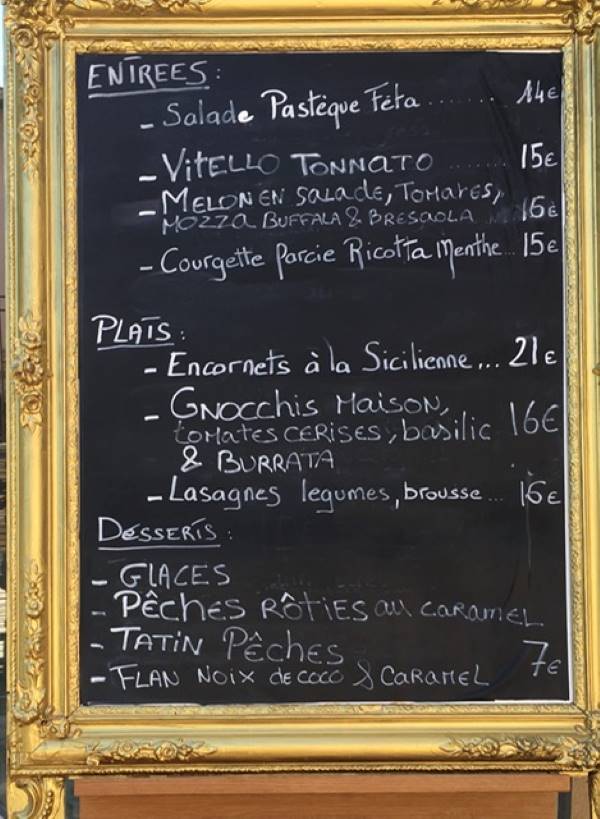 ENTREES :
- Salade Pastèque Féta ........ 14€
- VITELLO TONNATO ....... 15€
- MELON EN SALADE, TOMATES,
MOZZA BUFFALA & BRESAOLA 16€
- Courgette farcie Ricotta Menthe... 15€
PLATS :
- Encornets à la Sicilienne... 21€
- GNOCCHIS MAISON,
TOMATES CERISES, basilic 16€
& BURRATA
- Lasagnes legumes, brousse... 16€
DESSERTS :
- GLACES
- PÊCHES RÔTIES au CARAMEL
- TATIN PÊCHES
- FLAN NOIX DE COCO & CARAMEL 7€